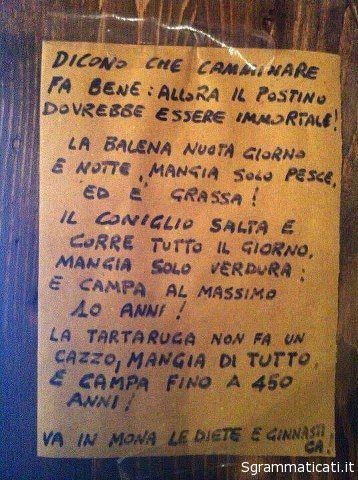 DICONO CHE CAMMINARE
FA BENE: ALLORA IL POSTINO
DOVREBBE ESSERE IMMORTALE!
LA BALENA NUOTA GIORNO
E NOTTE, MANGIA SOLO PESCE,
ED È GRASSA!
IL CONIGLIO SALTA E
CORRE TUTTO IL GIORNO,
MANGIA SOLO VERDURA:
E CAMPA AL MASSIMO
10 ANNI!
LA TARTARUGA NON FA UN
CAZZO, MANGIA DI TUTTO,
E CAMPA FINO A 450
ANNI!
VA IN MONA LE DIETE E GINNASTI
CA!
Sgrammaticati.it